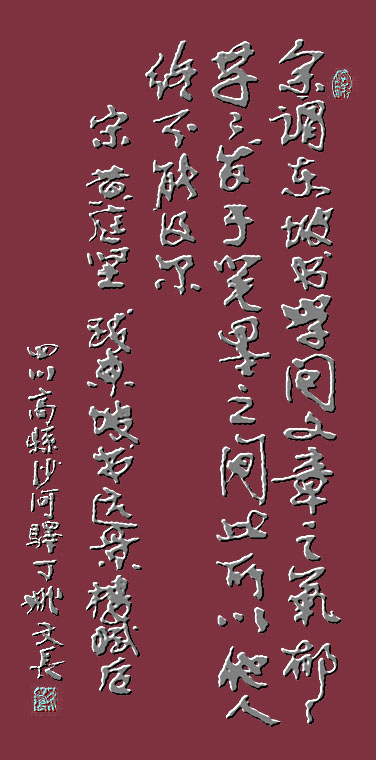 余谓东坡书学问文章之氣郁郁
芊芊发于笔墨之间此所以他人
终不能及尔
宋 黄庭坚 跋东坡书远景樓赋后
四川高縣沙河驛丁姚文長